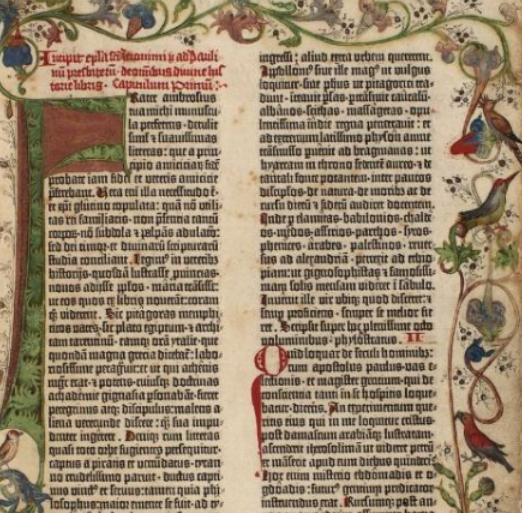 Incipit ep̄la sancti iheronimi ad pauli
nū presbiteꝝ: de omnibus divine his
torie libris. Capitulum primū:
Frater ambrosius
tua michi munuscu-
la perferens· detulit
simul et suavissimas
litteras: que a prin-
cipio amiciciarū fidē
probate iam fidei et veteris amicicie
preferebant. Vera enī illa necessitudo ē·
et xp̄i glutino copulata: quā nō utili-
tas rei familiaris· non p̄sentia tantū
corpoꝝ· nō subdola et palpās adulaco:
sed dei timor· et divinarū scripturarū
studia conciliant. Legimꝰ in veteribꝫ
historijs· quosdā lustrasse ꝓvincias·
novos adijsse pplos· maria trāsisse:
ut eos quos ex libris noverāt: coram
qꝫ viderent. Sic pitagoras memphi-
ticos vates· sic plato egiptum· et archi-
tam tarentinū· eamqꝫ orā ytalie· que
quondā magna grecia dicebat̄: labo-
riosissime peragravit: ut qui athenis
mgr̄ erat· et potens· cuiusqꝫ doctrinas
achademie gignasia ꝑsonabāt· fieret
peregrinus atqꝫ discipulus: malens a-
liena verecunde discere: qꝫ sua impu-
denter ingerere. Deniqꝫ cum litteras
quasi toto orbe fugientes persequitur·
captus a piratis et venūdatus· tyran-
no crudelissimo paruit· ductus capti-
vus vinctꝰ et servus: tamen quia phi-
losophus· maior emente se fuit. ad ty-
ingressi: aliud extra urbem quererent.
Appollonꝰ sive ille magꝰ ut vulgus
loquitur· sive phūs ut pitagorici tra-
dunt· intravit ꝑsas· ꝑtrāsivit caucasū·
albānos· scithas· massagetas· opu-
lentissima indie regna penetravit: et
ad extremum latissimo physon amne
trāsmisso pvenit ad bragmanas: ut
hyarcam in throno sedentē aureo· et de
tantali fonte potantem· inter paucos
discipulos· de natura· de moribs ac de
cursu dierū et siderū audiret docentem.
Inde ꝑ elamitas· babilonios· chalde-
os· medos· assirios· parthos· syros·
phenices· arabes· palestinos· rever-
sus ad alexandriā· perrexit ad ethio-
piam: ut gignosophistas et famosissi-
mam solis mensam videret ī sabulo.
Invenit ille vir ubiqꝫ quod disceret: et
semp ꝓficiens· semper se melior fie-
ret. Scripsit super hoc plenissime octo
voluminibus· phylostratus. II
Quid loquar de seculi hominibꝫ:
cum apostolus paulus· vas e-
lectionis· et magister gentium· qui de
conscientia tanti in se hospitis loque-
batur· dicens. An experimentum que-
ritis eius qui in me loquitur cristus·
post damascum arabiāqꝫ lustratam:
ascenderit iherosolimā ut videret petrū
et māserit apud eum diebus quindecī.
Hoc enim misterio ebdomadis et o-
gdoadis: futurꝰ gentium predicator
instruendus erat. Rursumqꝫ post an-